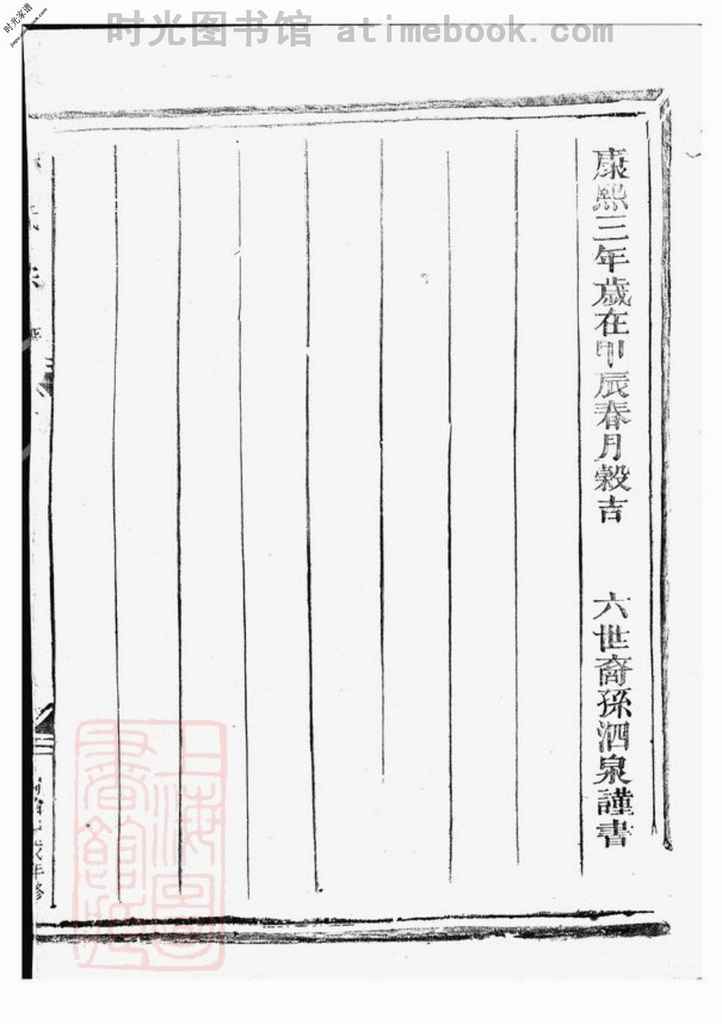 时光图书馆 atimebook.com
时光家谱
康熙三年歲在甲辰春月穀吉 六世裔孫泗泉謹書
上海圖書館藏